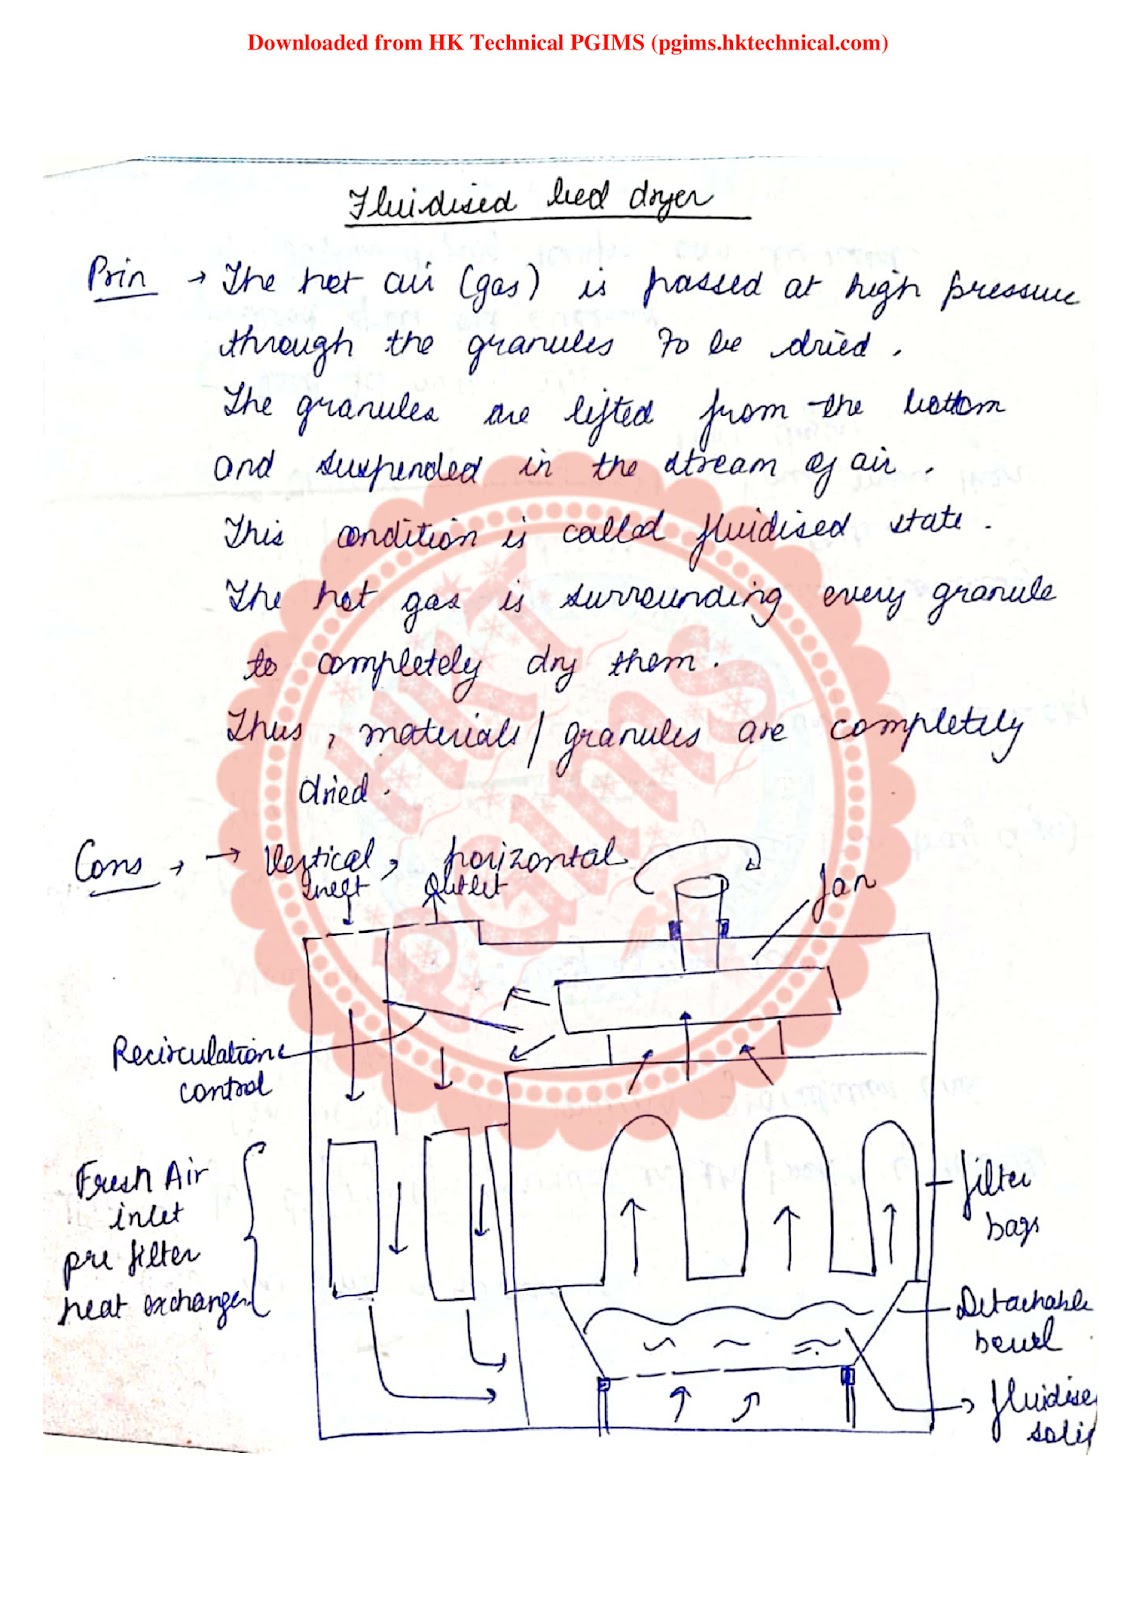 Downloaded from HK Technical PGIMS (pgims.hktechnical.com)
Fluidised bed dryer
Prin → The hot air (gas) is passed at high pressure
through the granules to be dried.
The granules are lifted from the bottom
and suspended in the stream of air.
This condition is called fluidised state.
The hot gas is surrounding every granule
to completely dry them.
Thus, materials/granules are completely
dried.
Cons → → Vertical, horizontal
Inlet
Outlet
fan
Recirculation
control
Fresh Air
inlet
pre filter
heat exchanger
filter
bags
Detachable
bowl
fluidise
soli
HKT
PGIMS